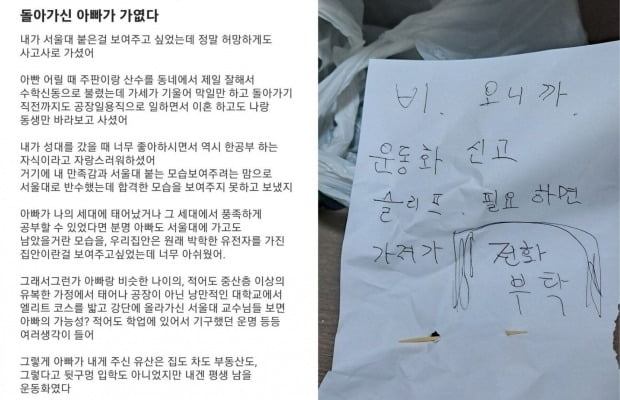 돌아가신 아빠가 가엾다
내가 서울대 붙은걸 보여주고 싶었는데 정말 허망하게도
사고사로 가셨어
아빤 어릴 때 주판이랑 산수를 동네에서 제일 잘해서
수학신동으로 불렸는데 가세가 기울어 막일만 하고 돌아가기
직전까지도 공장일용직으로 일하면서 이혼 하고도 나랑
동생만 바라보고 사셨어
내가 성대를 갔을 때 너무 좋아하시면서 역시 한공부 하는
자식이라고 자랑스러워하셨어
거기에 내 만족감과 서울대 붙는 모습보여주려는 맘으로
서울대로 반수했는데 합격한 모습을 보여주지 못하고 보냈지
아빠가 나의 세대에 태어났거나 그 세대에서 풍족하게
공부할 수 있었다면 분명 아빠도 서울대에 가고도
남았을거란 모습을, 우리집안은 원래 박학한 유전자를 가진
집안이란걸 보여주고싶었는데 너무 아쉬웠어.
그래서그런가 아빠랑 비슷한 나이의, 적어도 중산층 이상의
유복한 가정에서 태어나 공장이 아닌 낭만적인 대학교에서
엘리트 코스를 밟고 강단에 올라가신 서울대 교수님들 보면
아빠의 가능성? 적어도 학업에 있어서 기구했던 운명 등등
여러생각이 들어
그렇게 아빠가 내게 주신 유산은 집도 차도 부동산도,
그렇다고 뒷구멍 입학도 아니었지만 내겐 평생 남을
운동화였다
비. 오니까.
운동화 신고
슬리프. 필요하면
가져가 전화
부탁